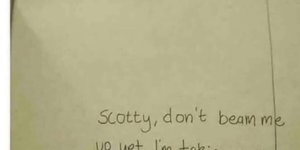 Scotty, don't beam me
up yet I'm